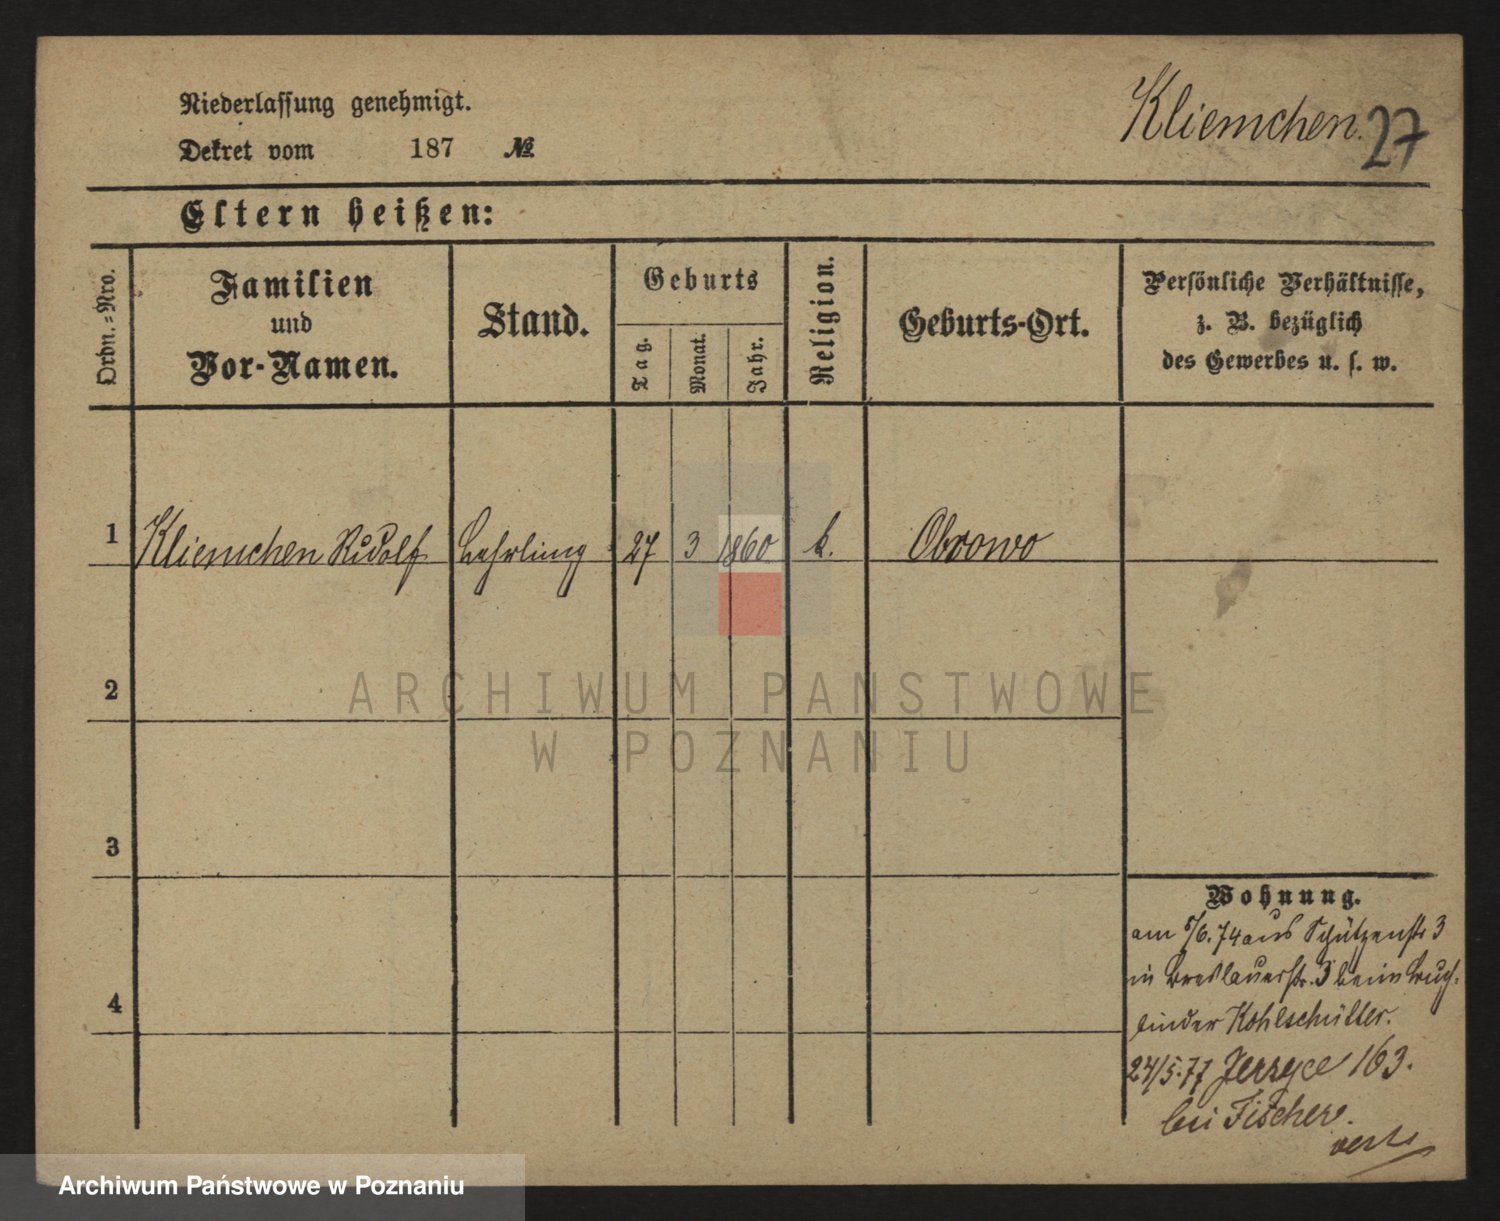 Niederlassung genehmigt.
Kliemchen. 27
Dekret vom 187 №
Eltern heißen:
Ordn.=Nro.
Familien
und
Vor-Namen.
Stand.
Geburts
Tag.
Monat.
Jahr.
Religion.
Geburts-Ort.
Persönliche Verhältnisse,
z. B. bezüglich
des Gewerbes u. s. w.
1 Kliemchen Rudolf Lehrling 27 3 1860 k. Obrowo
2
3
4
Wohnung.
am 5/6.74 aus Schützenstr 3
in Breslauerstr. 3 beim Buch-
binder Kohlschütter.
24/5.77 Jerzyce 163.
bei Fischer.
verte
ARCHIWUM PAŃSTWOWE
W POZNANIU
Archiwum Państwowe w Poznaniu